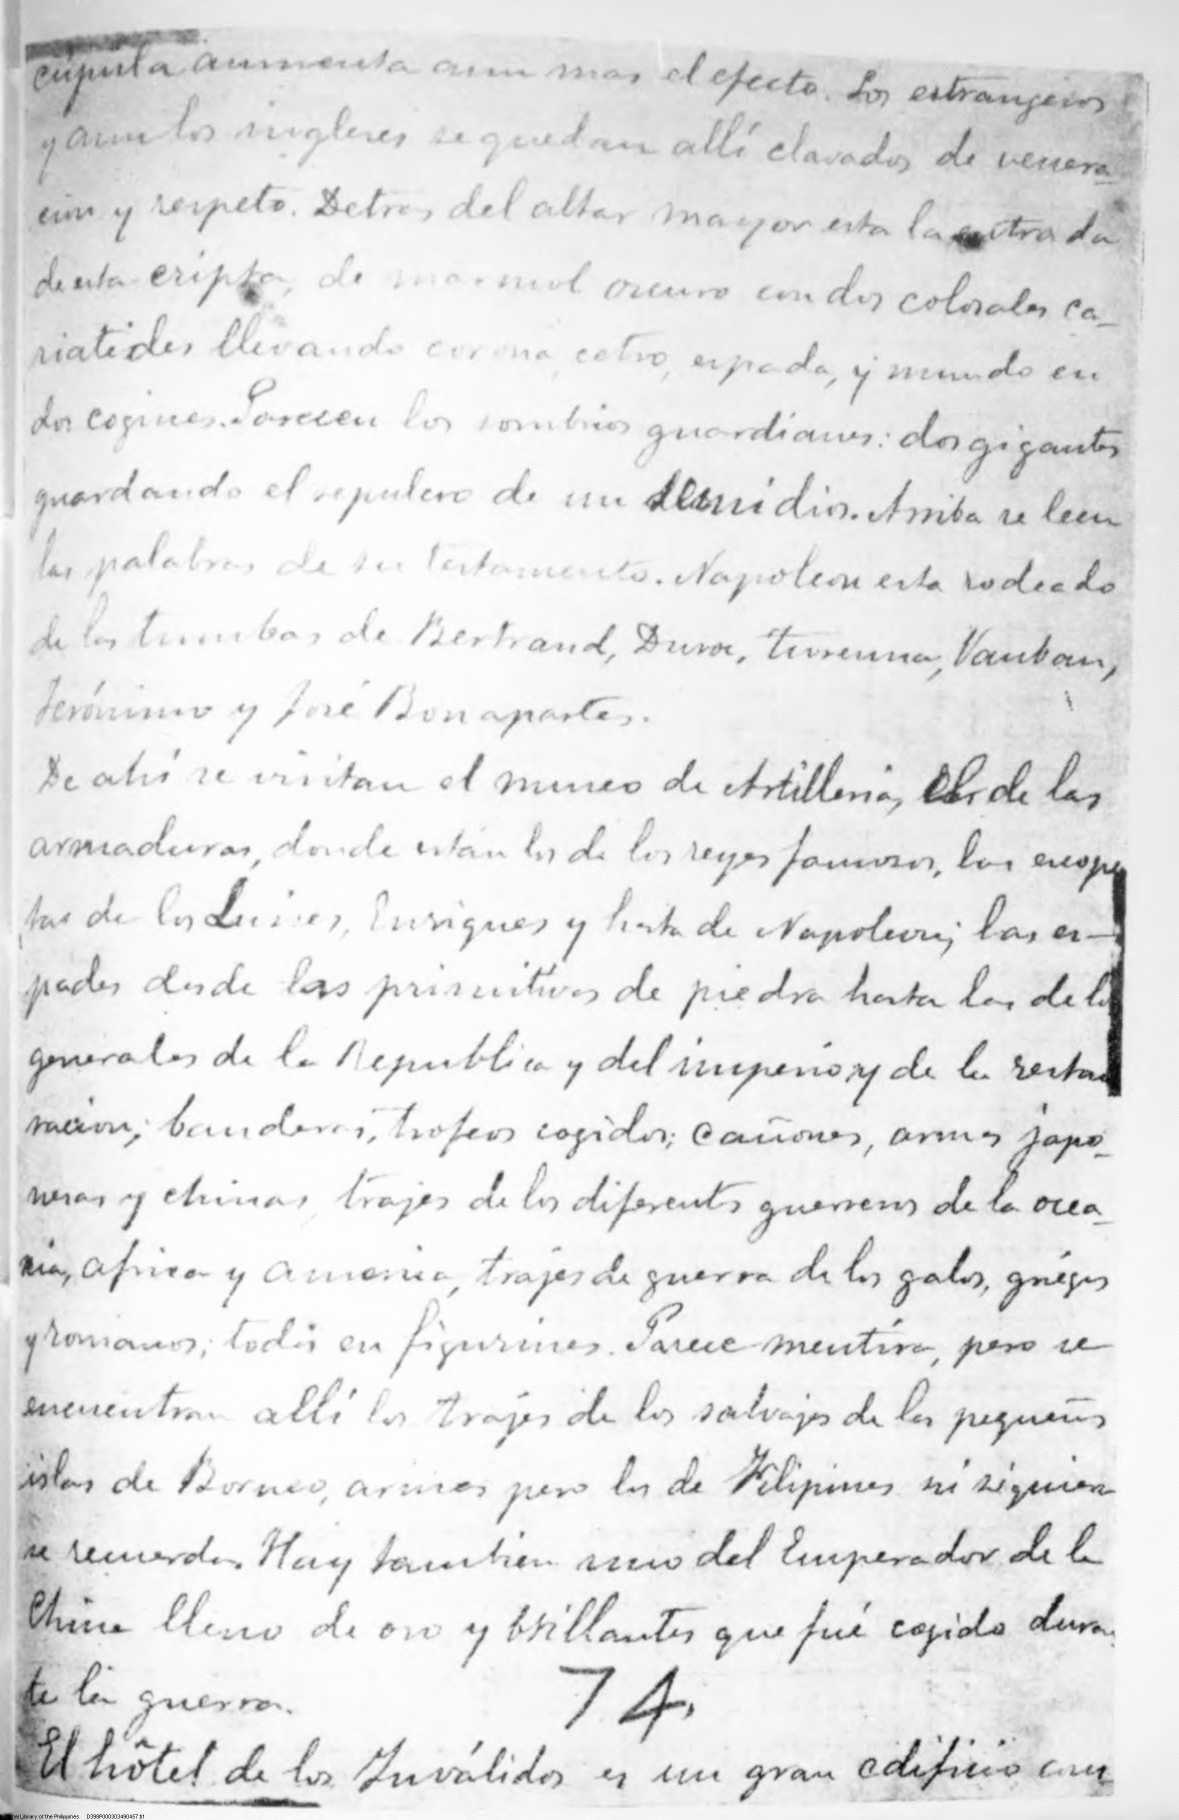 cúpula aumenta aun mas el efecto. Los estrangeros
y aun los ingleses se quedan allí clavados de venera-
cion y respeto. Detras del altar mayor esta la entrada
de esta cripta, de marmol oscuro con dos colosales ca-
riatides llevando corona, cetro, espada, y mundo en
dos cogines. Parecen los sombrios guardianes: dos gigantes
guardando el sepulcro de un semidios. Arriba se leen
las palabras de su testamento. Napoleon esta rodeado
de las tumbas de Bertrand, Duroc, Turenna, Vauban,
Jerónimo y José Bonapartes.
De ahí se visitan el museo de Artilleria, el de las
armaduras, donde están las de los reyes famosos, las escope
tas de los Luises, Enriques y hasta de Napoleon; las es-
padas desde las primitivas de piedra hasta las de los
generales de la Republica y del imperio y de la restau
racion; banderas, trofeos cogidos; cañones, armas japo-
nesas y chinas, trajes de los diferents guerreros de la ocea-
nia, africa y america, trajes de guerra de los galos, griegos
y romanos; todos en figurines. Parece mentira, pero se
encuentran allí los trajes de los salvajes de las pequeñas
islas de Borneo, armas pero los de Filipinas ni siquiera
se recuerdan. Hay tambien uno del Emperador de la
China lleno de oro y brillantes que fué cogido duran-
te la guerra.
74.
El hôtel de los Inválidos es un gran edificio con
Library of the Philippines D399P000303490467.tif